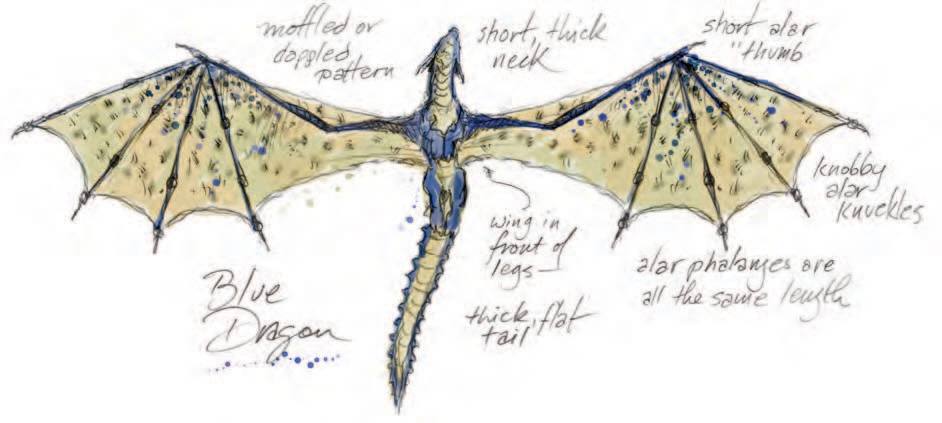 mottled or
dappled
pattern
short, thick
neck
short alar
"thumb
knobby
alar
knuckles
wing in
front of
legs—
alar phalanges are
all the same length
thick, flat
tail
Blue
Dragon